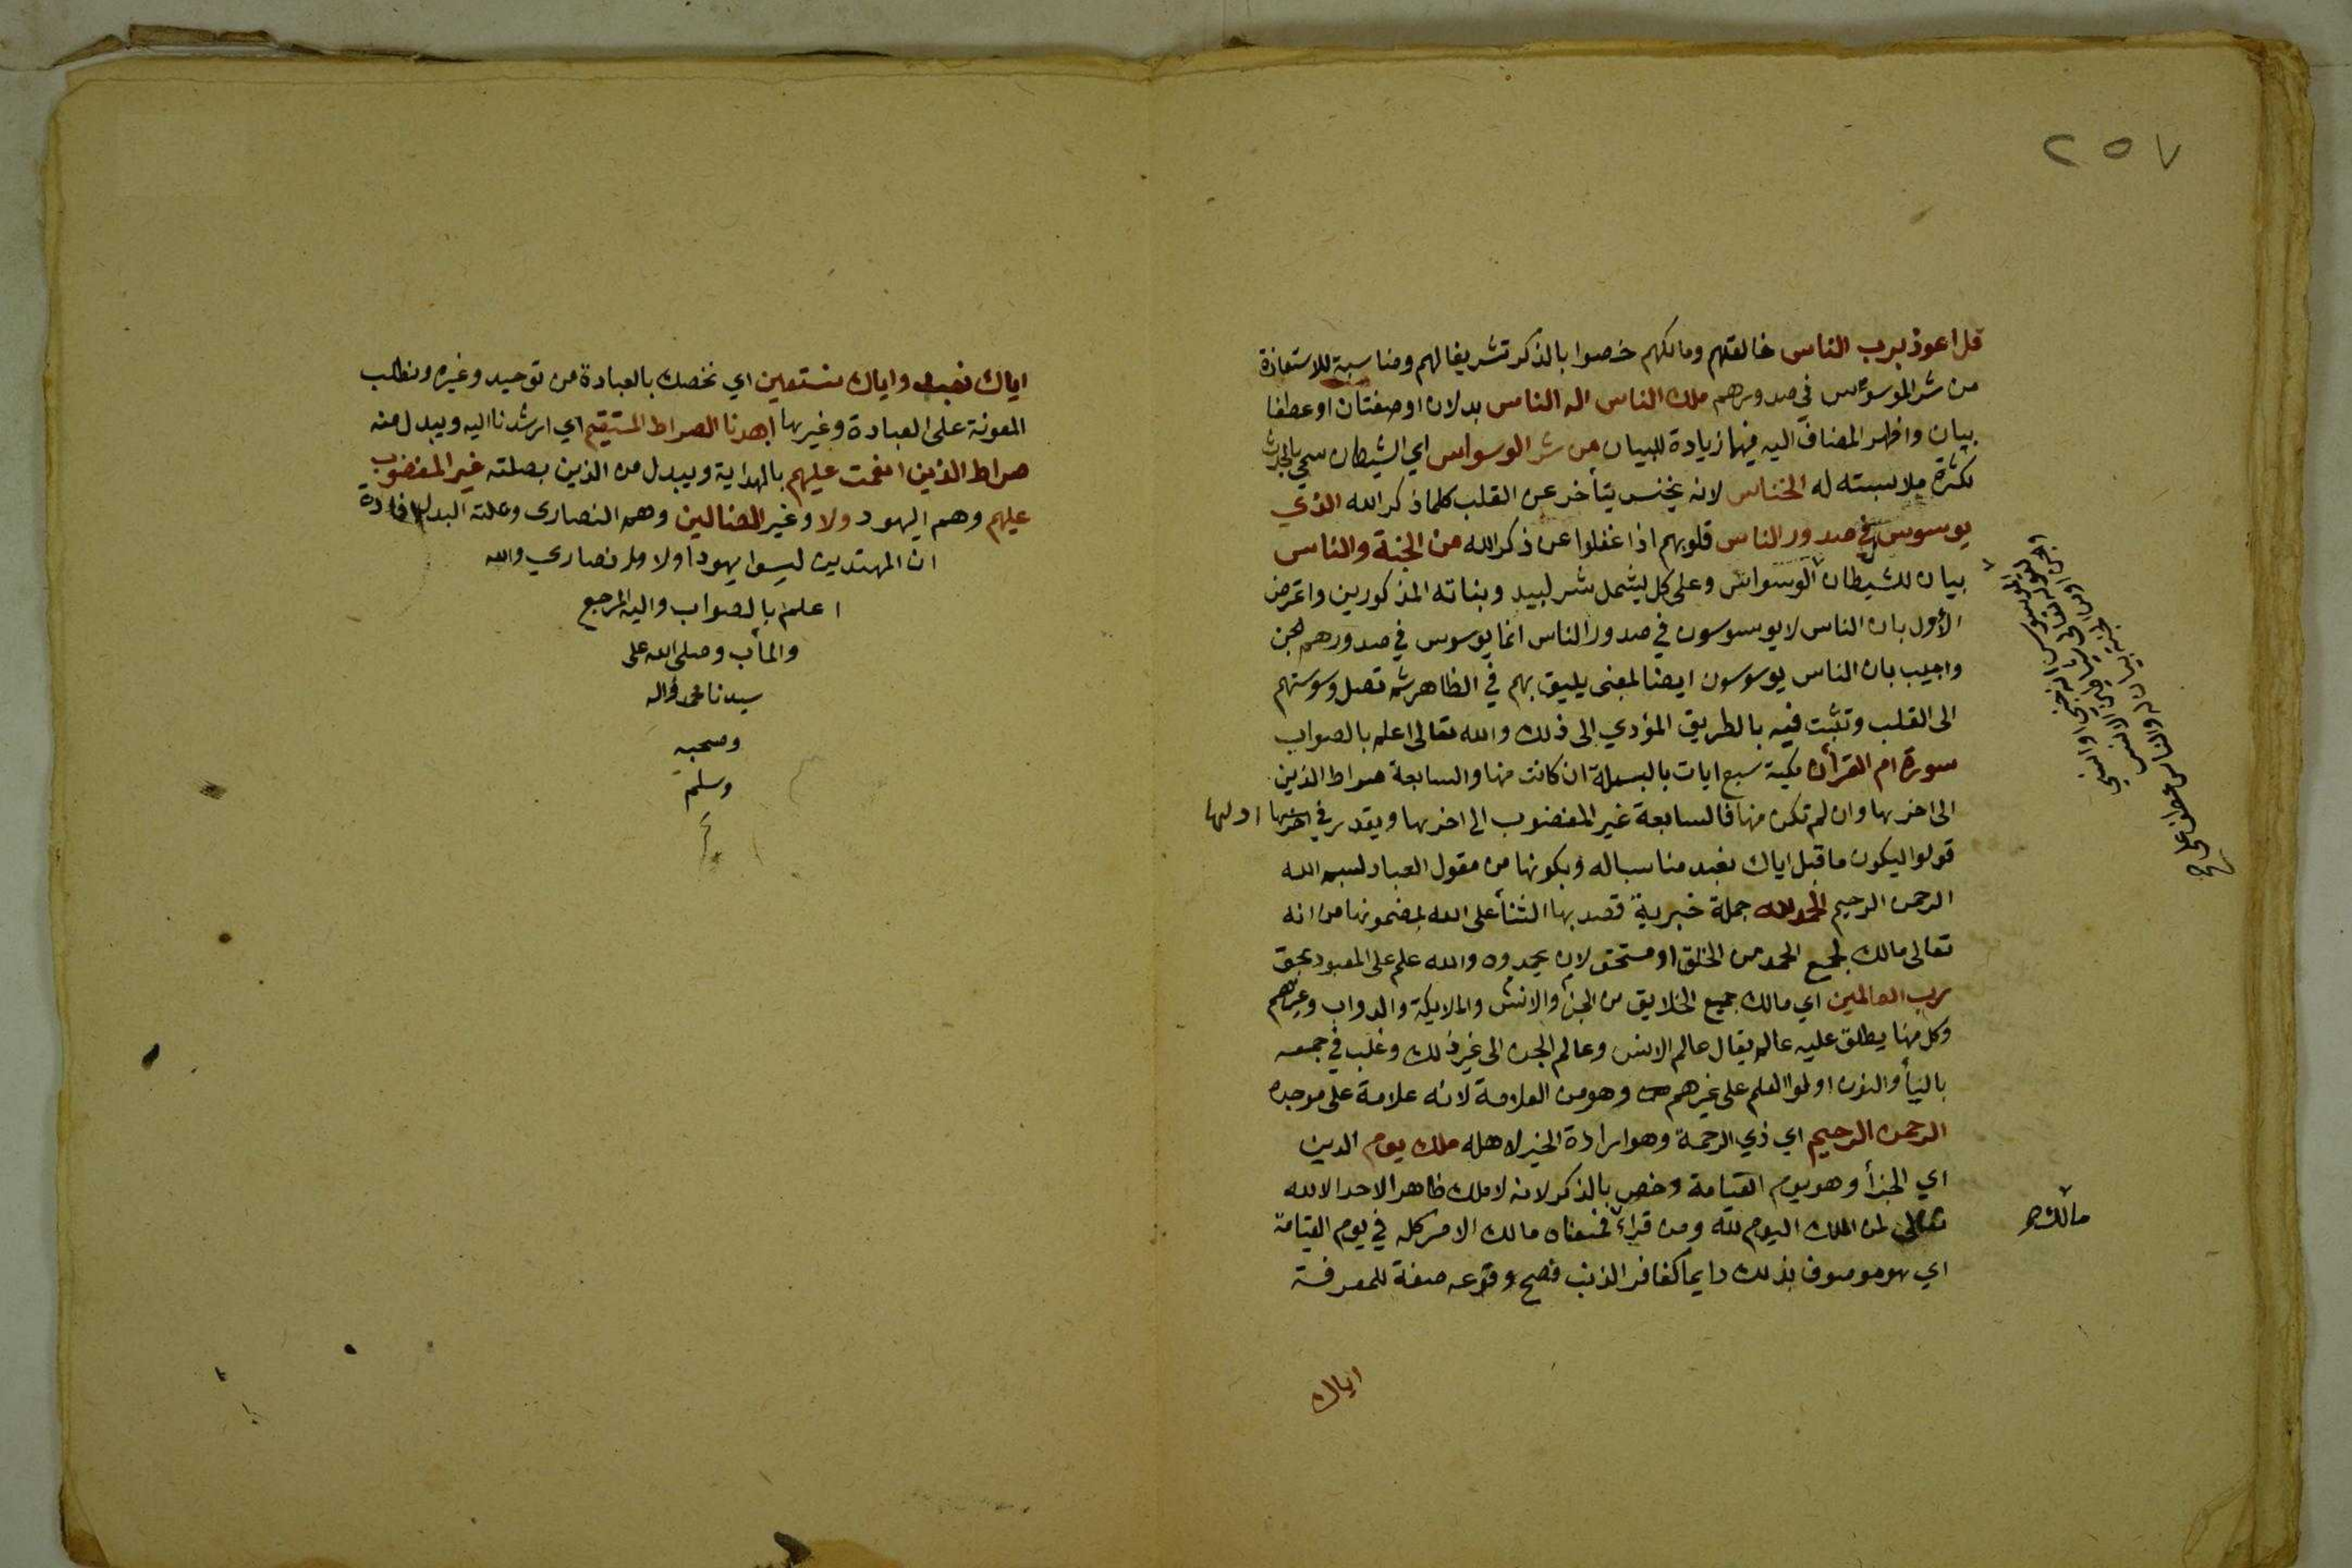 ٢٥٧
قل اعوذ برب الناس خالقهم ومالكهم خصوا بالذكر تشريفا لهم ومناسبة للاستعاذة
من شر الموسوس في صدورهم ملك الناس اله الناس بدلان او صفتان او عطفا
بيان واظهر المضاف اليه فيها زيادة للبيان من شر الوسواس اي الشيطان سمي بالحدث
لكثرة ملابسته له الخناس لانه يخنس يتأخر عن القلب كلما ذكر الله الذي
يوسوس في صدور الناس قلوبهم اذا غفلوا عن ذكر الله من الجنة والناس
بيان للشيطان الوسواس وعلى كل يشمل شر لبيد وبناته المذكورين واعترض
الأول بان الناس لا يوسوسون في صدور الناس انما يوسوس في صدورهم لجن
واجيب بان الناس يوسوسون ايضا لمعنى يليق بهم في الظاهر ثم تصل وسوستهم
الى القلب وتثبت فيه بالطريق المؤدي الى ذلك والله تعالى اعلم بالصواب
سورة ام القرأن مكية سبع ايات بالبسملة ان كانت منها والسابعة صراط الذين
الى اخرها وان لم تكن منها فالسابعة غير المغضوب الى اخرها ويقدر في اولها
قولوا ليكون ما قبل اياك نعبد مناسبا له وبكونها من مقول العباد بسم الله
الرحمن الرحيم الحمد لله جملة خبرية قصد بها الثنأ على الله بمضمونها من انه
تعالى مالك لجميع الحمد من الخلق او مستحق لان يحمدوه والله علم على المعبود بحق
رب العالمين اي مالك جميع الخلايق من الجن والانس والملايكة والدواب وغيرهم
وكل منها يطلق عليه عالم يقال عالم الانس وعالم الجن الى غير ذلك وغلب في جمعه
باليأ والنون اولوا العلم على غيرهم وهو من العلامة لانه علامة على موجده
الرحمن الرحيم اي ذي الرحمة وهو ارادة الخير لاهله ملك يوم الدين
اي الجزأ وهو يوم القيامة وخص بالذكر لانه لا ملك ظاهرا لاحد الا لله
تعالى لمن الملك اليوم لله ومن قرأ فمعناه مالك الامر كله في يوم القيامة
اي هو موصوف بذلك دايما كغافر الذنب فصح وقوعه صفة للمعرفة
مالك
اياك
اياك نعبد واياك نستعين اي نخصك بالعبادة من توحيد وغيره ونطلب
المعونة على العبادة وغيرها اهدنا الصراط المستقيم اي ارشدنا اليه ويبدل منه
صراط الذين انعمت عليهم بالهداية ويبدل من الذين بصلته غير المغضوب
عليهم وهم اليهود ولا وغير الضالين وهم النصارى وعلته البدل افادة
ان المهتدين ليسوا يهودا ولا نصاري والله
اعلم بالصواب واليه المرجع
والمأب وصلى الله على
سيدنا محمد واله
وصحبه
وسلم